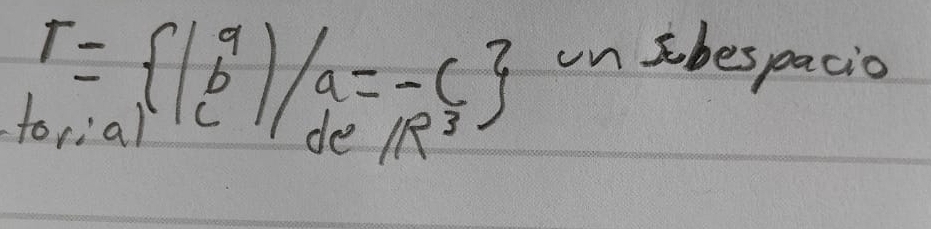 T = {(a b c) / a = -c} un subespacio
torial de IR³